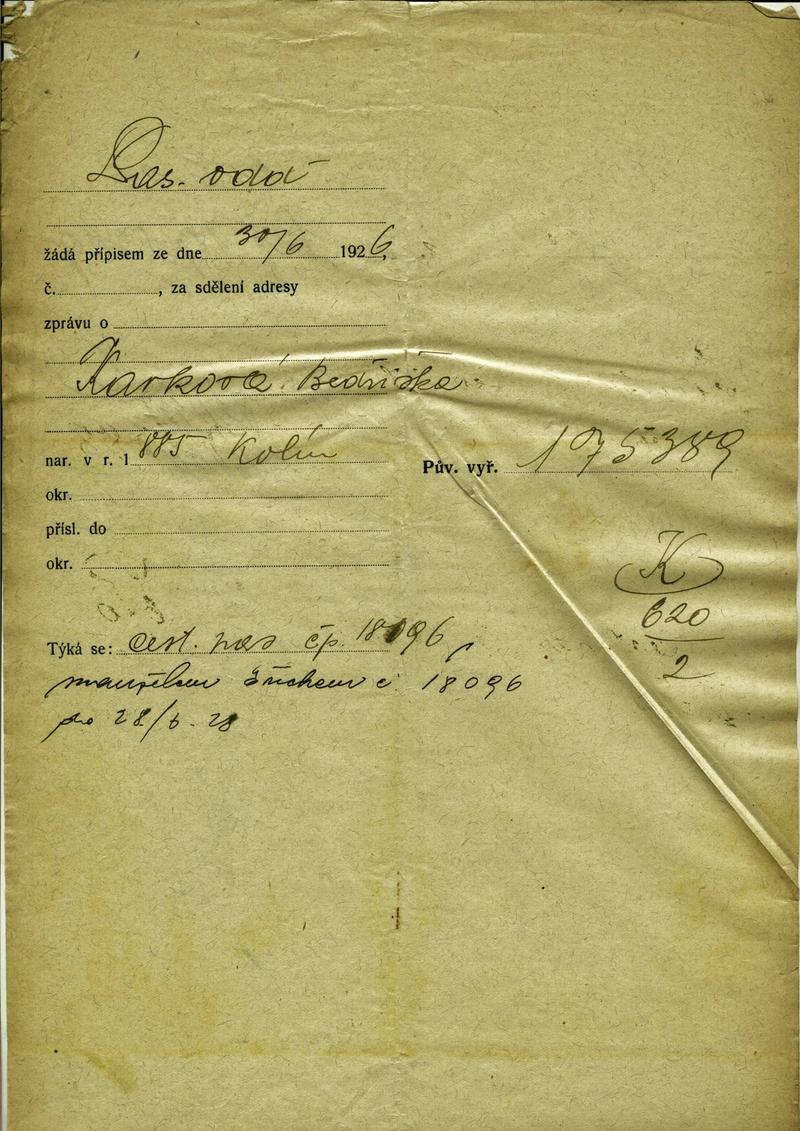 Pas. odd
žádá přípisem ze dne 30/6 1926,
č. , za sdělení adresy
zprávu o
Karková Bedřiška
nar. v r. 1885 Kolín
Pův. vyř. 175389
okr.
přísl. do
okr.
K
620
2
Týká se: cest. pas čp. 18096
manželem č 18096
do 28/6. 28